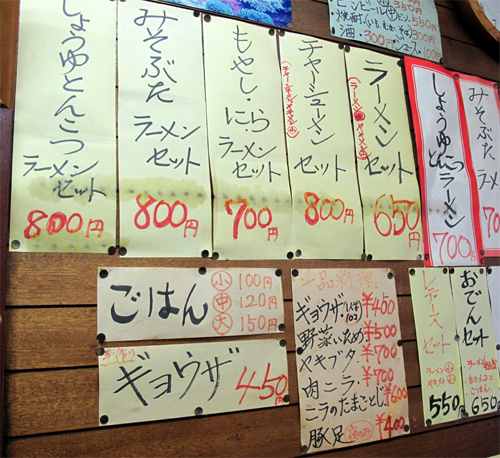 ビンビール㊥ビン 550円
300円
しょうゆとんこつ
ラーメン
セット
800円
みそぶた
ラーメン
セット
800円
もやし・にら
ラーメン
セット
700円
チャーシューメン
セット
800円
ラーメン
セット
650円
しょうゆ
とんこつ
ラーメン
700円
みそぶた
ラ
70
ごはん
㊥ 120円
小 100円
大 150円
手作り
ギョウザ
450円
一品料理
ギョウザ ¥450
野菜いため ¥500
ヤキブタ ¥700
肉ニラ ¥700
ニラのたまごとじ ¥600
豚足 ¥400
レディース
セット
550円
おでん
セット
650